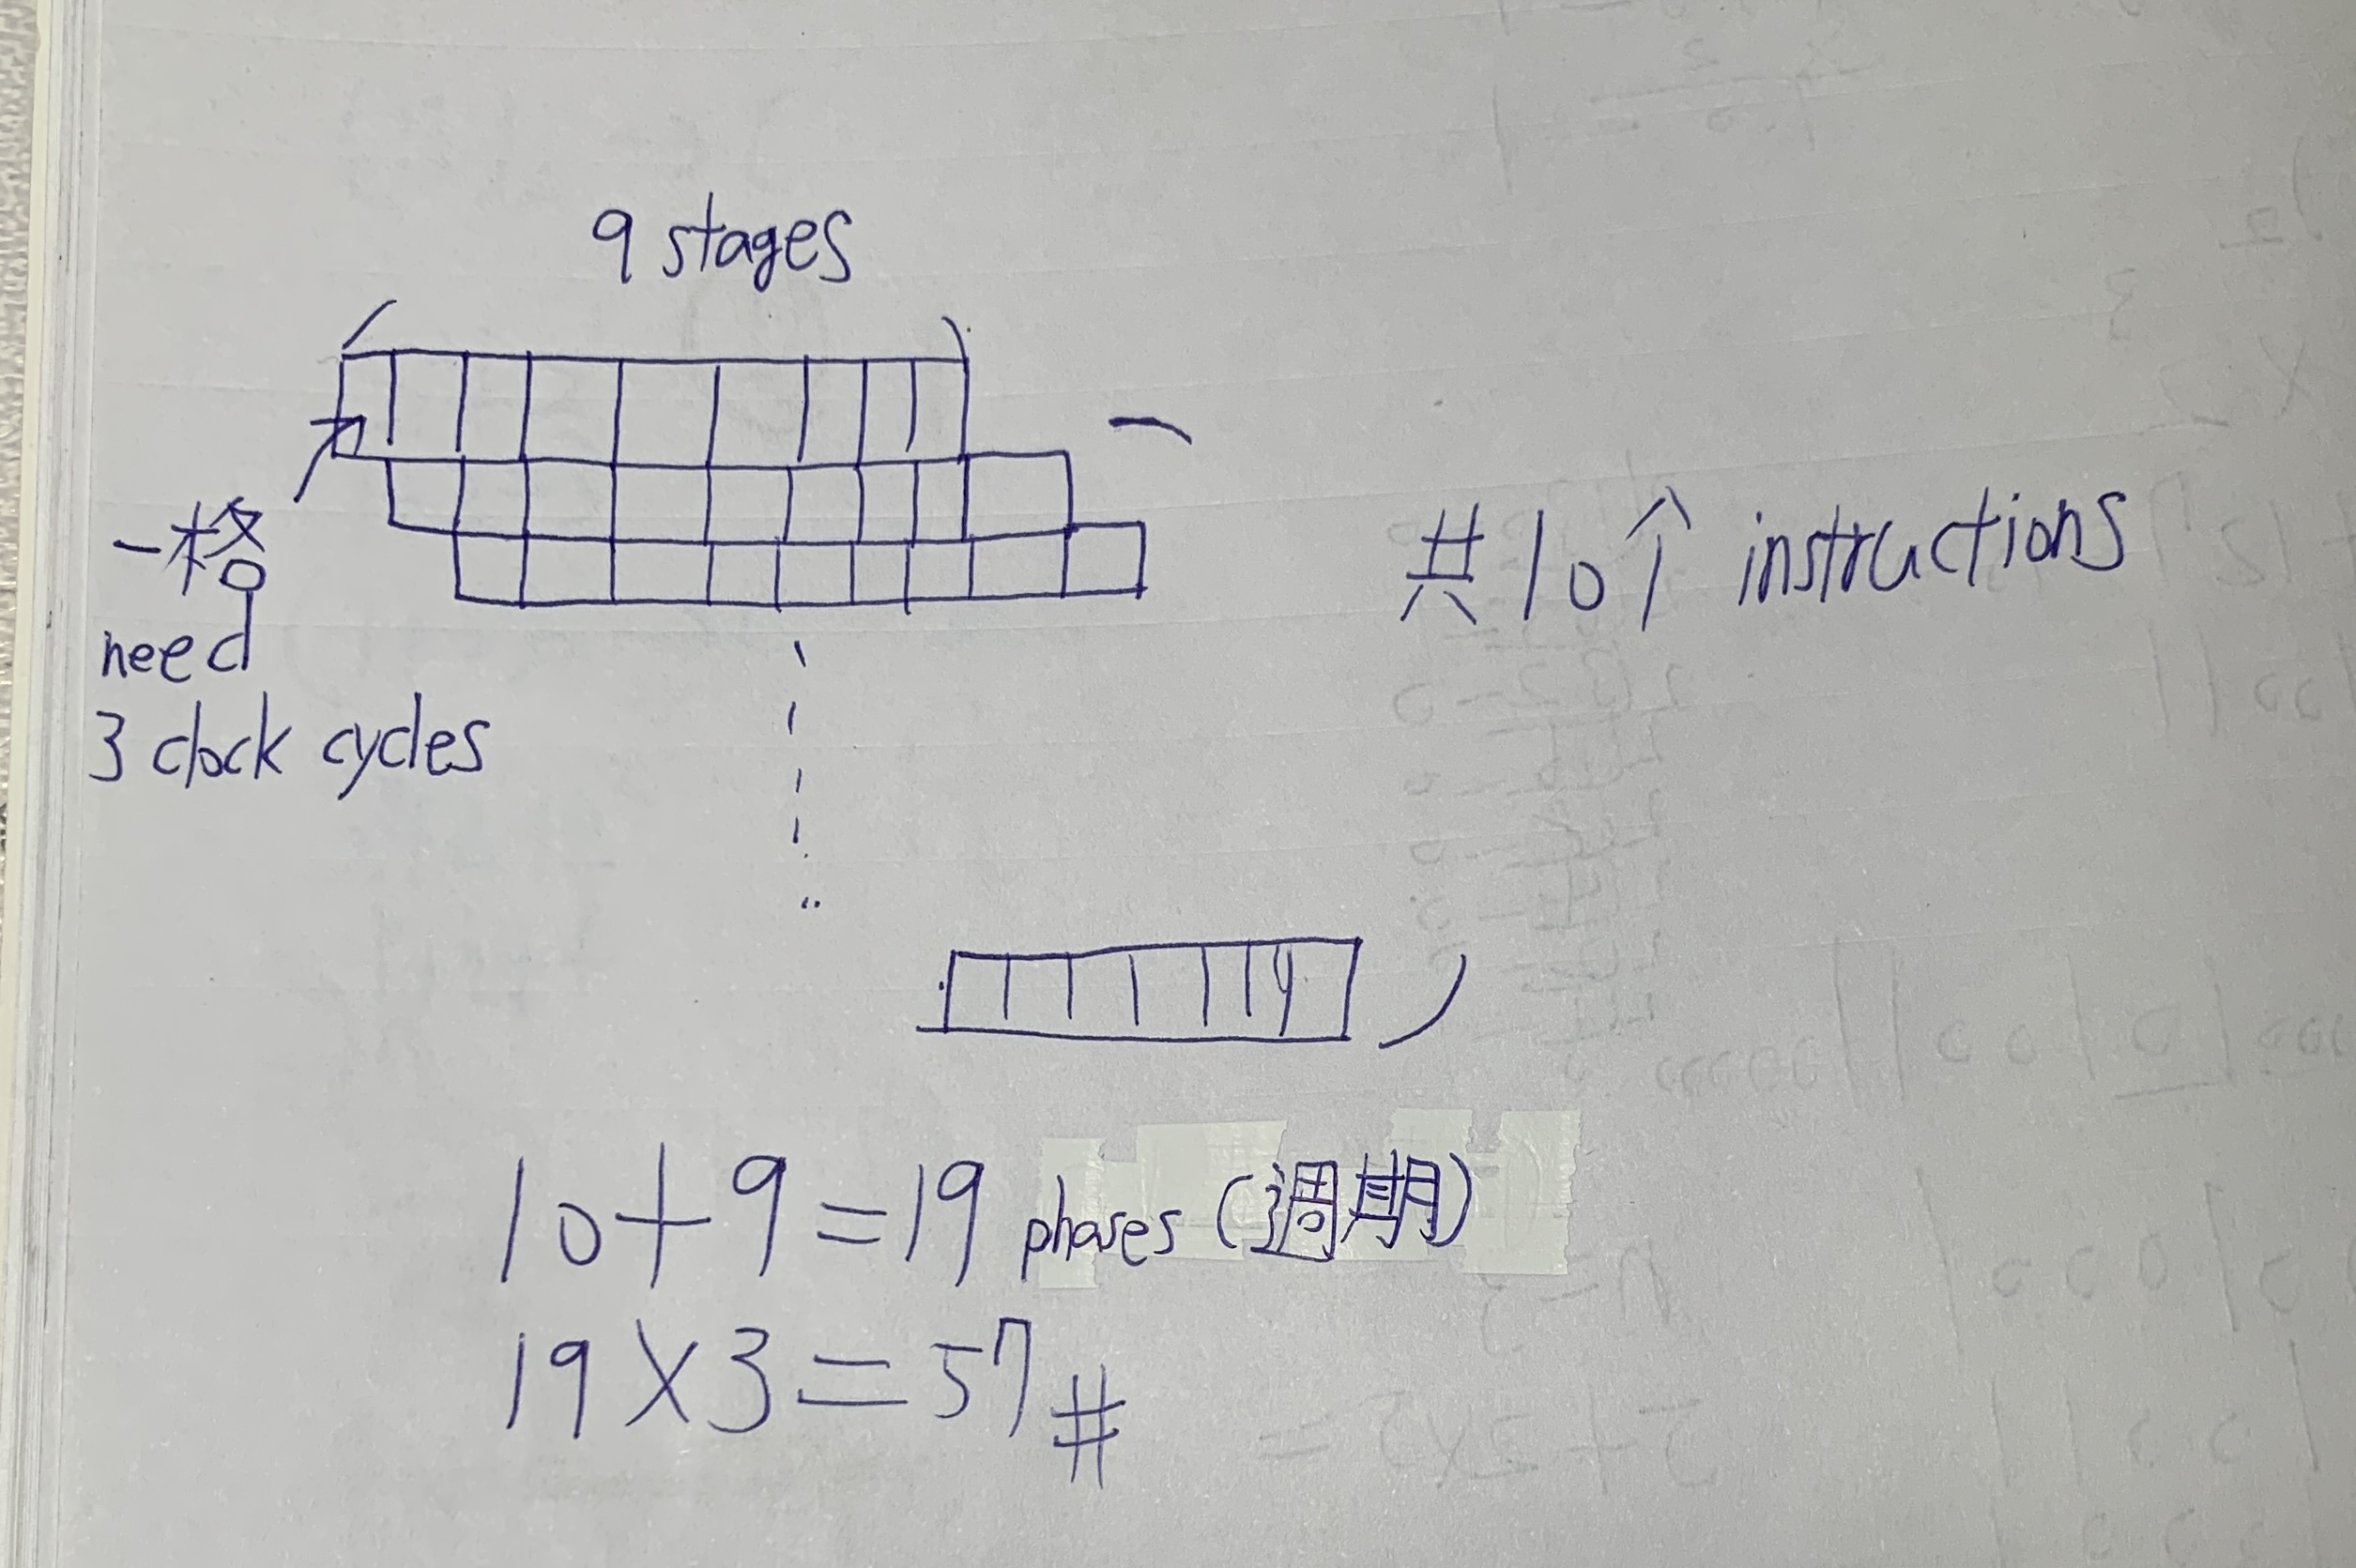 9 stages
一格
need
3 clock cycles
共10个 instructions
10+9=19 phases (週期)
19×3=57#